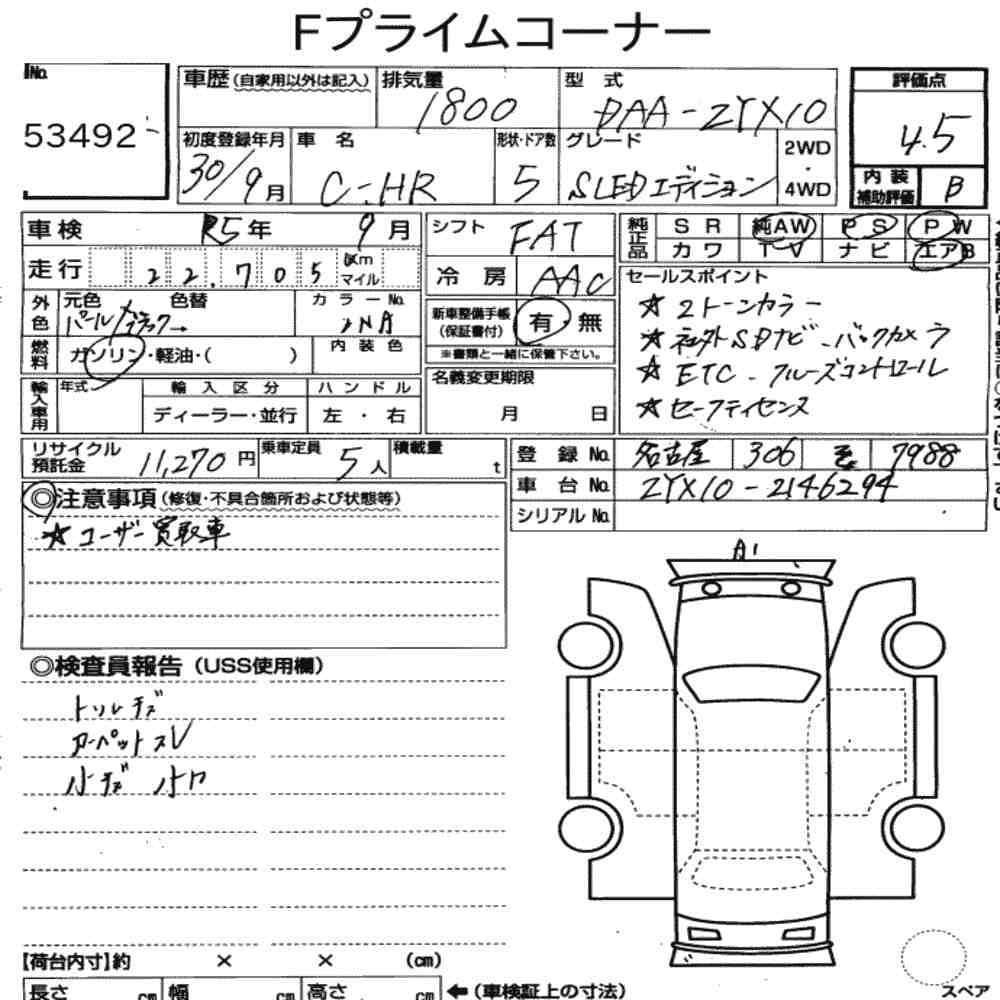 Fプライムコーナー
No.
53492
車歴(自家用以外は記入)
排気量
1800
型 式
DAA-ZYX10
評価点
4.5
内装
補助評価
B
初度登録年月
30/9月
車 名
C-HR
形状・ドア数
5
グレード
S LED エディション
2WD
・
4WD
車検
R5年 9月
シフト
FAT
純正品
SR 純AW PS PW
カワ TV ナビ エアB
走行
22.705
Km
マイル
冷房
AAC
セールスポイント
☆ 2トーンカラー
☆ 社外SDナビ - バックカメラ
☆ ETC - クルーズコントロール
☆ セーフティセンス
外色
元色
色替
パール/ブラック→
カラーNo.
2NA
新車整備手帳
(保証書付)
有・無
※書類と一緒に保管下さい。
燃料
ガソリン・軽油・( )
内装色
輸入車用
年式
輸入区分
ハンドル
ディーラー・並行
左・右
名義変更期限
月 日
リサイクル
預託金
11,270円
乗車定員
5人
積載量
t
登録No.
名古屋 306 そ 7988
車台No.
ZYX10-2146294
シリアルNo.
◎注意事項(修復・不具合箇所および状態等)
☆ユーザー買取車
A1
◎検査員報告(USS使用欄)
トリムキズ
カーペットスレ
小キズ 小凹
【荷台内寸】約 × × (cm)
長さ cm 幅 cm 高さ cm
←(車検証上の寸法)
スペア